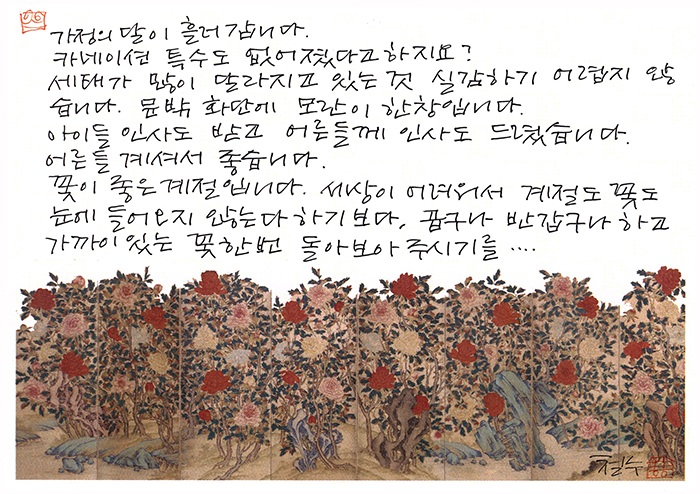 가정의 달이 흘러갑니다.
카네이션 특수도 없어졌다고 하지요?
세태가 많이 달라지고 있는 것 실감하기 어렵지 않
습니다. 문밖 화단에 모란이 한창입니다.
아이들 인사도 받고 어른들께 인사도 드렸습니다.
어른들 계셔서 좋습니다.
꽃이 좋은 계절입니다. 세상이 어려워서 계절도 꽃도
눈에 들어오지 않는다 하기보다, 곱구나 반갑구나 하고
가까이 있는 꽃 한번 돌아보아 주시기를 ....
철수